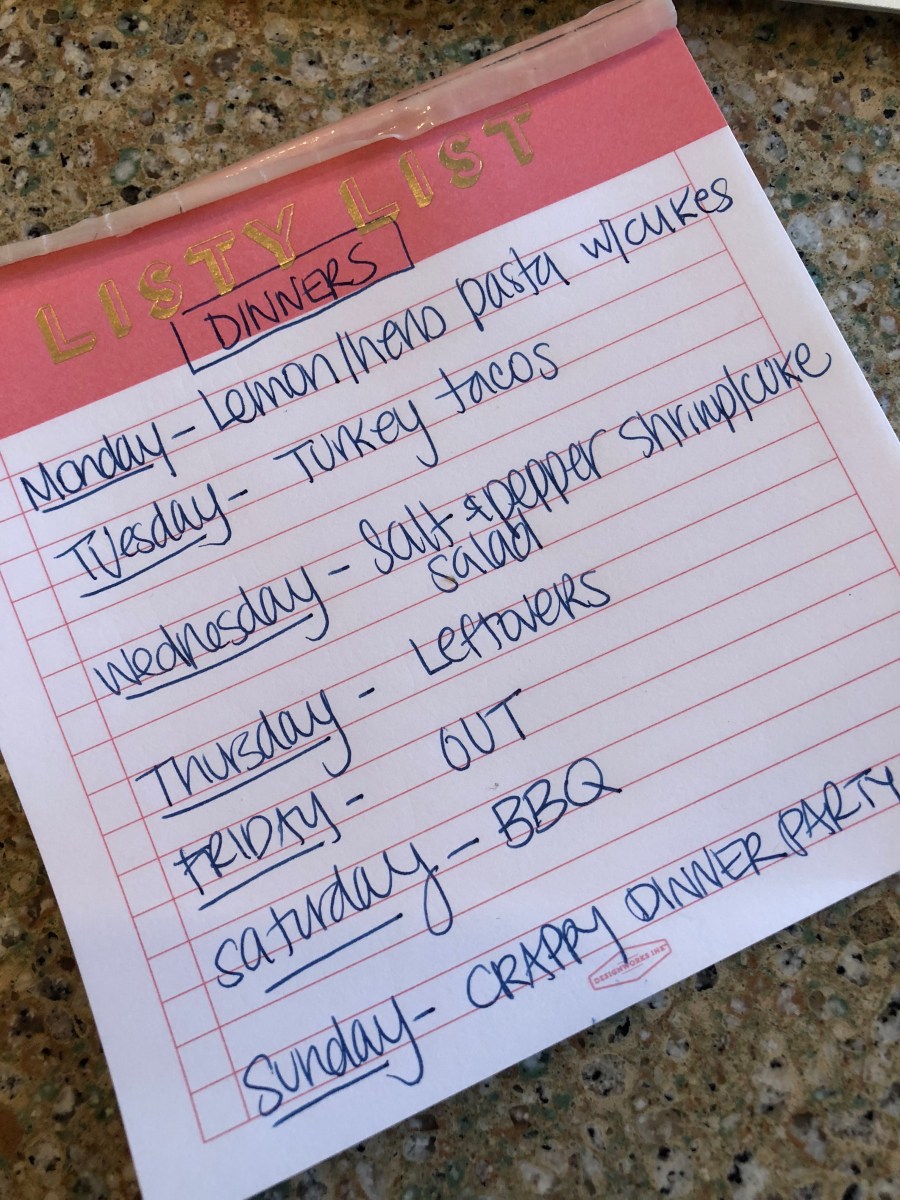 LISTY LIST
DINNERS
Monday - Lemon/herb pasta w/cukes
Tuesday - Turkey tacos
Wednesday - Salt & pepper shrimp/cuke
salad
Thursday - Leftovers
FRIDAY - OUT
Saturday - BBQ
Sunday - CRAPPY DINNER PARTY
DESIGNWORKS INK